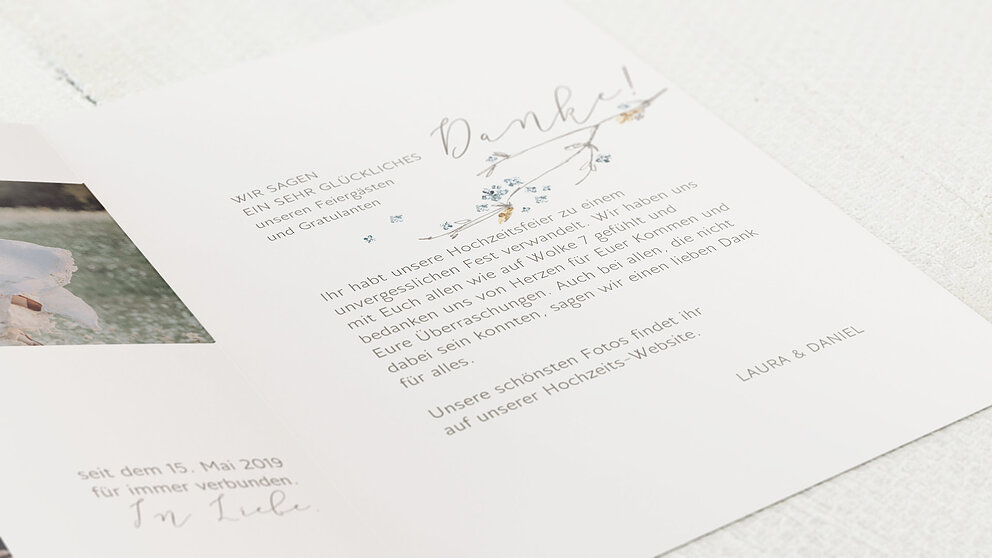 WIR SAGEN
EIN SEHR GLÜCKLICHES Danke!
unseren Feiergästen
und Gratulanten
Ihr habt unsere Hochzeitsfeier zu einem
unvergesslichen Fest verwandelt. Wir haben uns
mit Euch allen wie auf Wolke 7 gefühlt und
bedanken uns von Herzen für Euer Kommen und
Eure Überraschungen. Auch bei allen, die nicht
dabei sein konnten, sagen wir einen lieben Dank
für alles.
Unsere schönsten Fotos findet ihr
auf unserer Hochzeits-Website.
LAURA & DANIEL
seit dem 15. Mai 2019
für immer verbunden.
In Liebe.